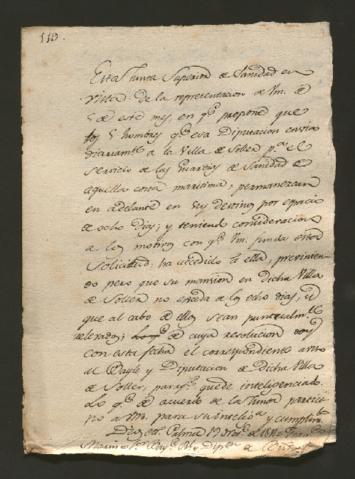 110.
Esta Junta Superior de Sanidad en
vista de la representacion de Vm. de
5 de este mes, en qe. propone que
los 5 hombres qe. esa Diputacion envia
diariamte. a la Villa de Soller pa. el
servicio de las Guardias de Sanidad de
aquella costa maritima, permanezcan
en adelante en su destino por espacio
de ocho dias; y teniend consideracion
a los motivos con qe. Vm. funda esta
solicitud, ha accedido a ella, previnien
do pero que su mansion en dicha Villa
de Soller no exceda a los ocho dias, y
que al cabo de ellos sean puntualmte.
relevados; de cuya resolucion doy
con esta fecha el correspondiente aviso
al Bayle y Diputacion de dicha Villa
de Soller, para qe. quede inteligenciado.
Lo qe. de acuerdo de la Junta partici
po a Vm. para su intelia. y cumplimto.
Dios Palma 19